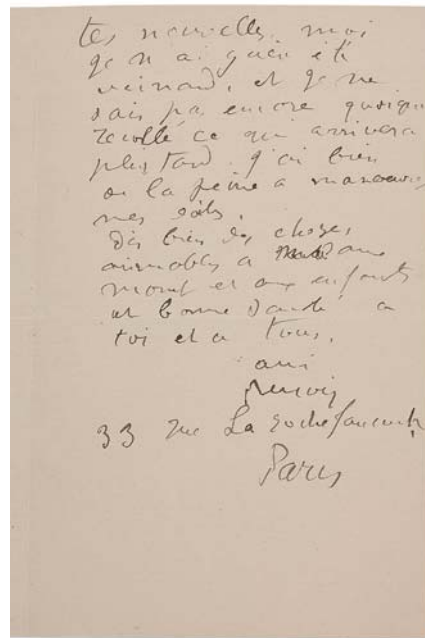 tes nouvelles. moi
je n ai guère été
veinard, et je ne
sais pas encore quoique
recollé ce qui arrivera
plus tard. j'ai bien
de la peine a manoeuvrer
mes
Dis bien des choses
aimables a Madame
Monet et aux enfants
et bonne santé a
toi et a tous.
ami
Renoir
33 rue La Rochefoucault
Paris